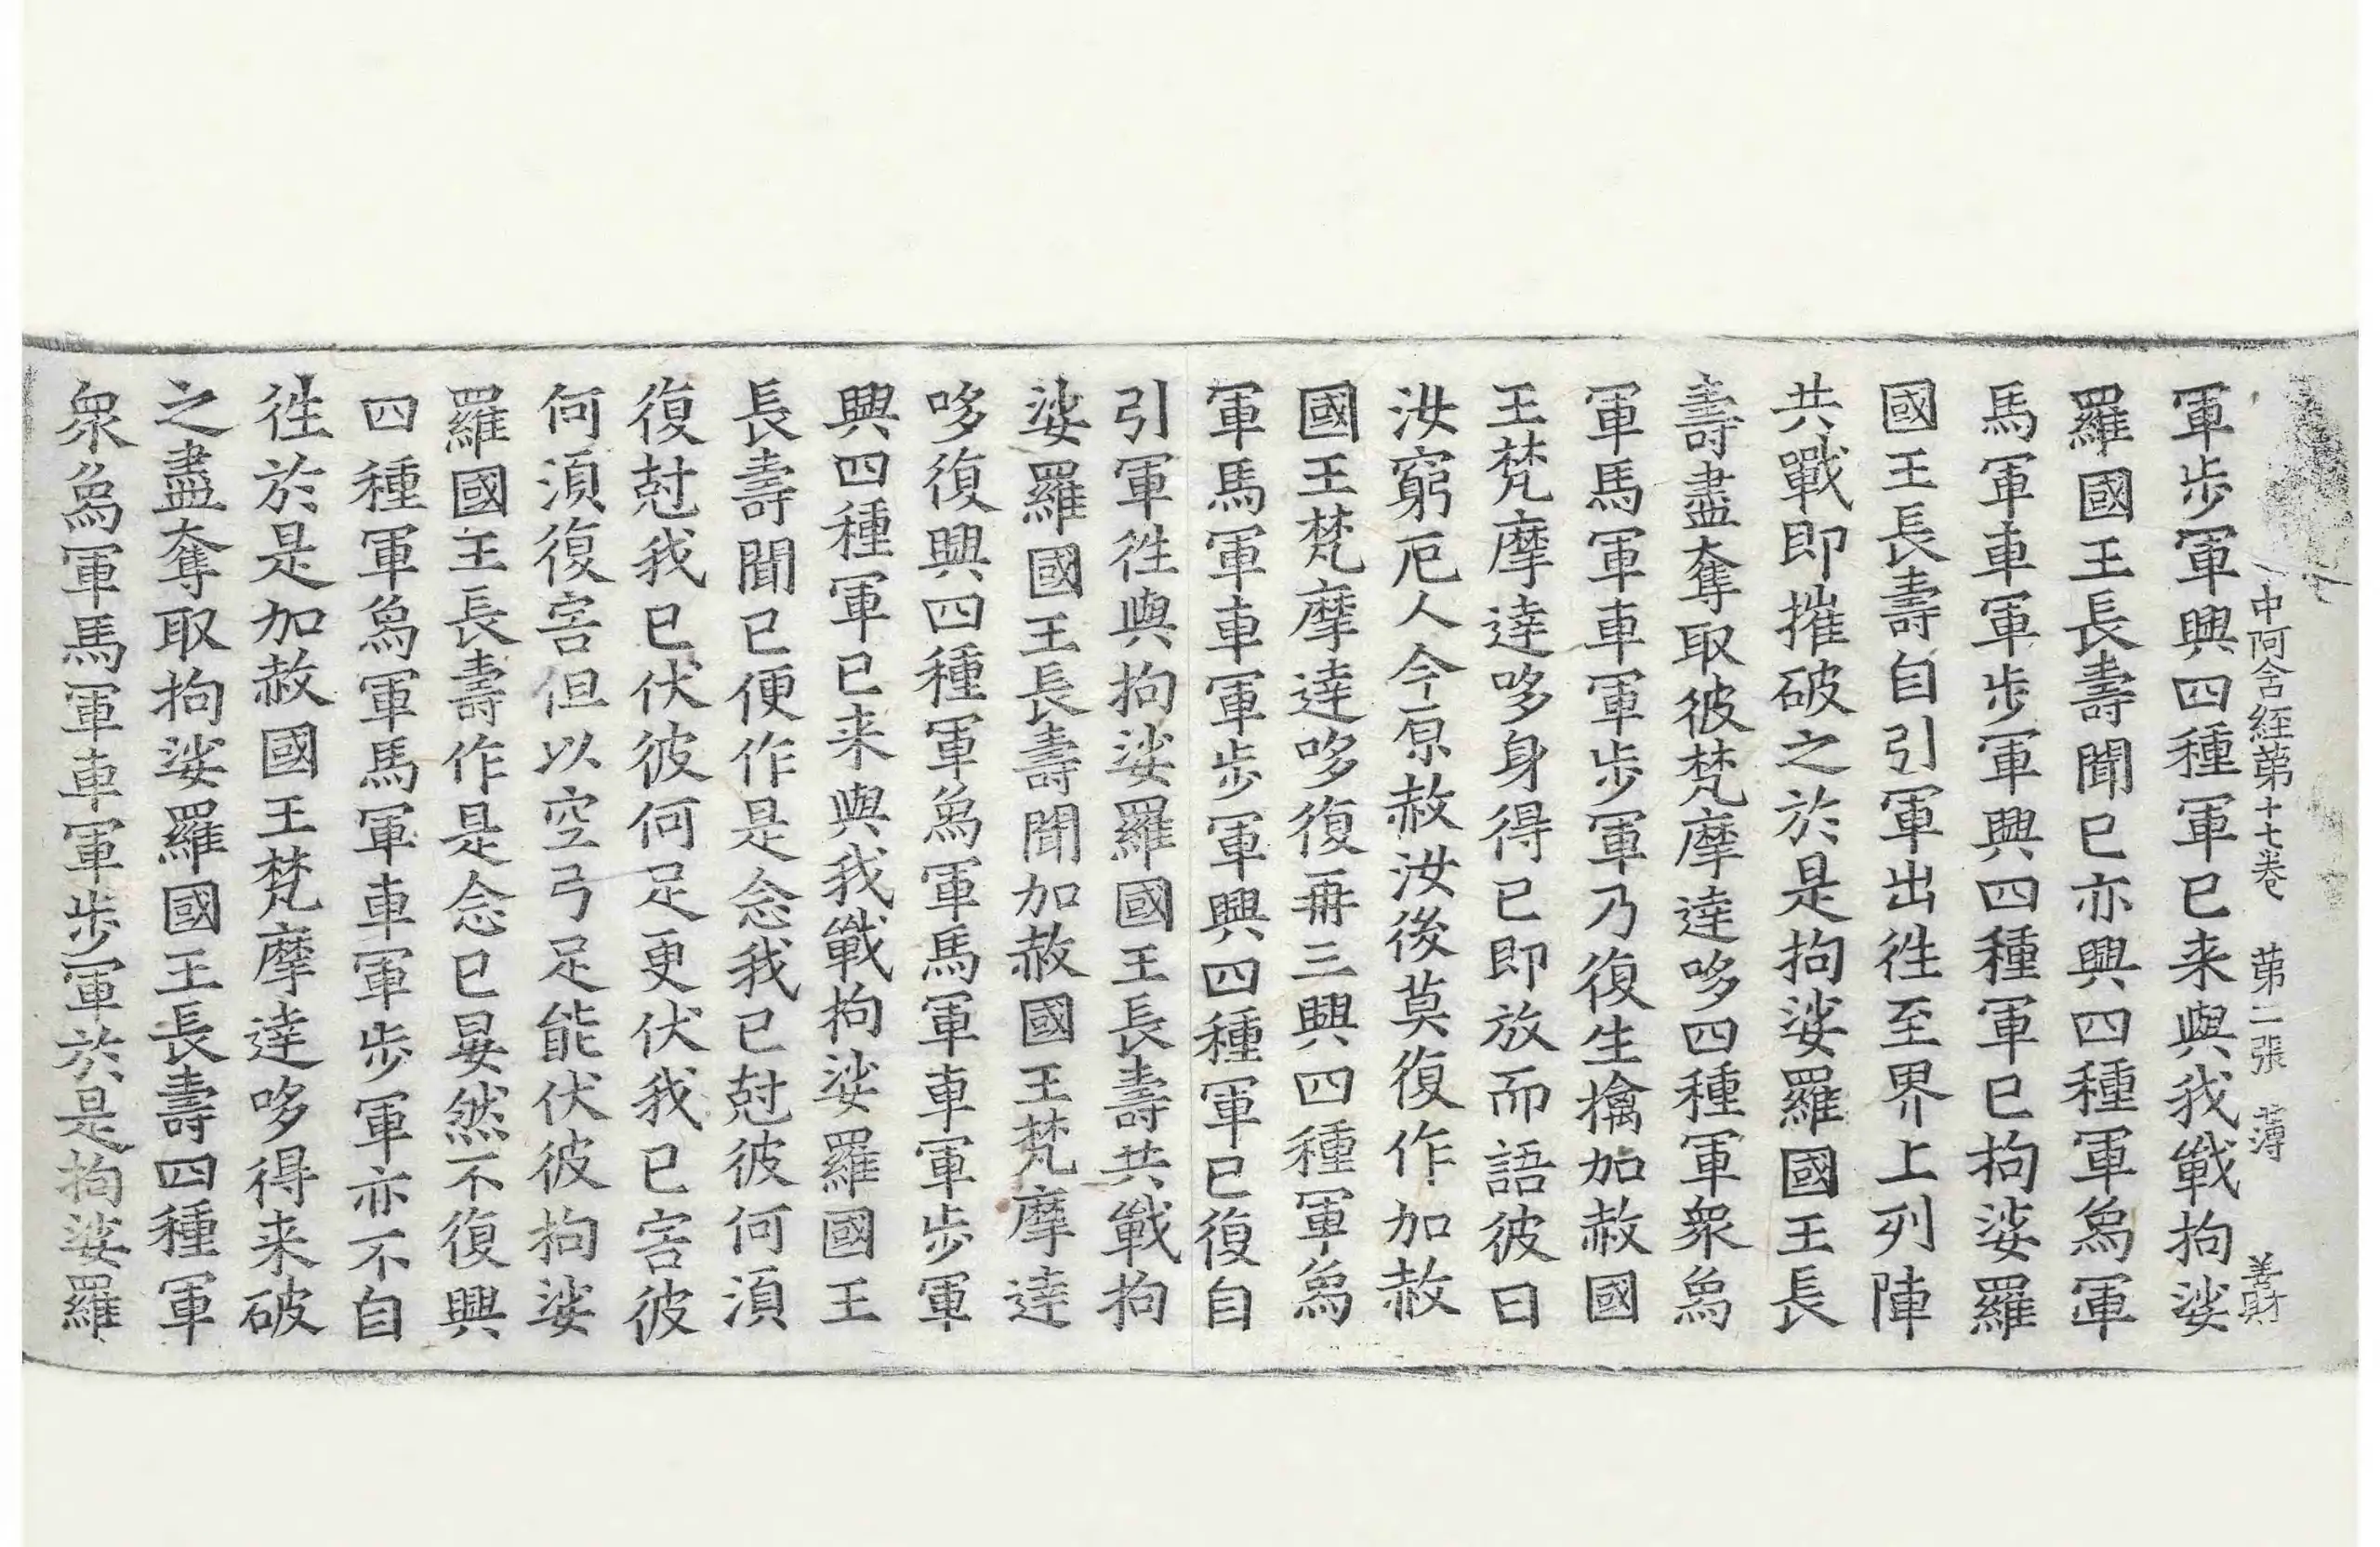 中阿含経苐十七巻　苐二張　薄　善財
軍歩軍興四種軍已来與我戰拘娑
羅國王長壽聞已亦興四種軍象軍
馬軍車軍歩軍興四種軍已拘娑羅
國王長壽自引軍出徃至界上列陣
共戰即摧破之於是拘娑羅國王長
壽盡奪取彼梵摩達哆四種軍衆象
軍馬軍車軍歩軍乃復生擒加赦國
王梵摩達哆身得已即放而語彼曰
汝窮厄人今原赦汝後莫復作加赦
國王梵摩達哆復再三興四種軍象
軍馬軍車軍歩軍興四種軍已復自
引軍徃與拘娑羅國王長壽共戰拘
娑羅國王長壽聞加赦國王梵摩達
哆復興四種軍象軍馬軍車軍歩軍
興四種軍已来與我戰拘娑羅國王
長壽聞已便作是念我已尅彼何須
復尅我已伏彼何足更伏我已害彼
何須復害但以空弓足能伏彼拘娑
羅國王長壽作是念已晏然不復興
四種軍象軍馬軍車軍歩軍亦不自
徃於是加赦國王梵摩達哆得来破
之盡奪取拘娑羅國王長壽四種軍
衆象軍馬軍車軍歩軍於是拘娑羅